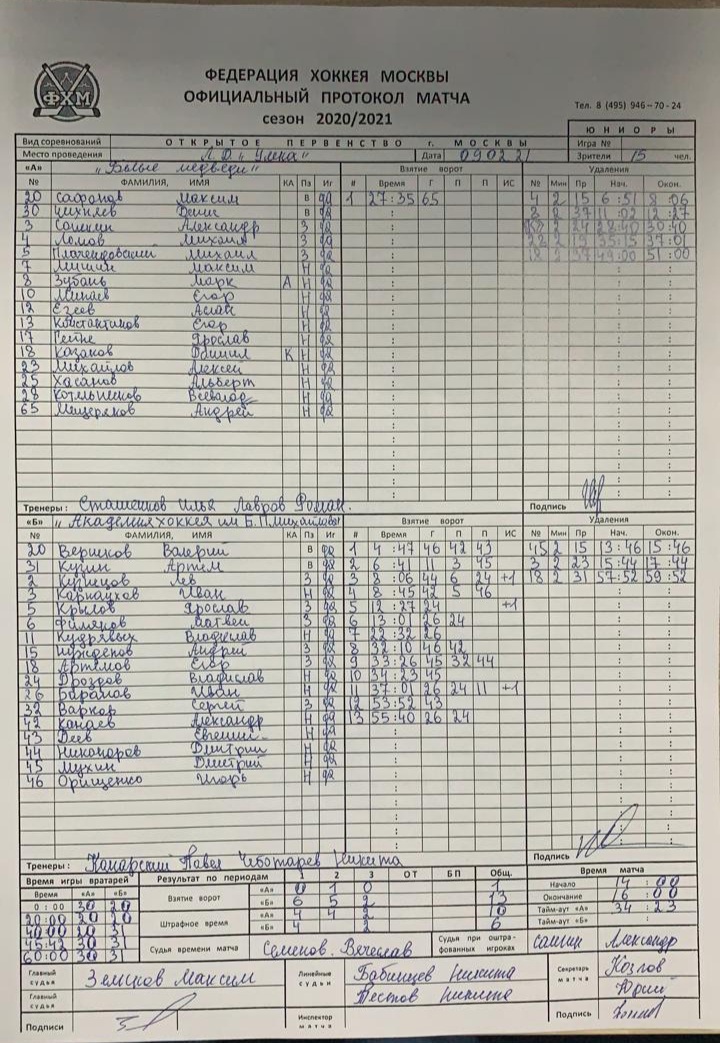 ФХМ
ФЕДЕРАЦИЯ ХОККЕЯ МОСКВЫ
ОФИЦИАЛЬНЫЙ ПРОТОКОЛ МАТЧА
сезон 2020/2021
Тел. 8 (495) 946-70-24
ЮНИОРЫ
Вид соревнований ОТКРЫТОЕ ПЕРВЕНСТВО г. МОСКВЫ Игра №
Место проведения Л.Д. „Умка" Дата 09.02.21 Зрители 15 чел.
«А» „Белые медведи" Взятие ворот Удаления
№ ФАМИЛИЯ, ИМЯ КА Пз Иг # Время Г П П ИС № Мин Пр Нач. Окон.
20 Сафонов Максим В да 1 27:35 65 4 2 15 6:51 8:06
30 Денис В да 8 2 37 11:02 12:27
3 Александр З да 2 24 28:40 30:40
4 Ломов Михаил З да 28 2 19 35:15 37:01
5 Михаил З да 18 2 37 49:00 51:00
7 Максим Н да
8 Зубань Марк А Н да
10 Минаев Егор Н да
12 Езеев Аслан Н да
13 Константинов Егор Н да
17 Ярослав Н да
18 Казаков Даниил К Н да
23 Михайлов Алексей Н да
25 Хасанов Альберт Н да
28 Котельников Всеволод Н да
65 Мещеряков Андрей Н да
Тренеры: Сташенков Илья Лавров Роман. Подпись
«Б» „Академия хоккея им Б.П.Михайлова" Взятие ворот Удаления
№ ФАМИЛИЯ, ИМЯ КА Пз Иг # Время Г П П ИС № Мин Пр Нач. Окон.
20 Вершков Валерий В да 1 4:47 46 42 43 45 2 15 13:46 15:46
31 Кузин Артём В да 2 6:41 11 3 45 3 2 23 15:44 17:44
2 Купцов Лев З да 3 8:06 44 6 24 +1 18 2 31 57:52 59:52
3 Карнаухов Иван Н да 4 8:45 42 5 46
5 Крылов Ярослав З да 5 12:27 24 +1
6 Филянов Матвей З да 6 13:01 26 24
11 Кудрявых Владислав Н да 7 22:32 26
15 Андрей З да 8 32:10 46 42
18 Артёмов Егор З да 9 33:26 45 32 44
24 Дроздов Владислав Н да 10 34:23 45
26 Баранов Иван Н да 11 37:01 26 24 11 +1
32 Варкор Сергей З да 12 53:52 43
42 Канаев Александр Н да 13 55:40 26 24
43 Деев Евгений Н да
44 Никоноров Дмитрий Н да
45 Мухин Дмитрий Н да
46 Орищенко Игорь Н да
Тренеры: Канарский Павел Чеботарев Никита Подпись
Время игры вратарей Результат по периодам 1 2 3 ОТ БП Общ. Время матча
Время «А» «Б» Взятие ворот «А» 0 1 0 1 Начало 14:00
0:00 30 20 «Б» 6 5 2 13 Окончание 16:00
20:00 20 20 Штрафное время «А» 4 4 2 10 Тайм-аут «А» 34:23
40:00 20 31 «Б» 4 2 6 Тайм-аут «Б» :
45:42 30 31 Судья времени матча Семенов Вячеслав Судья при оштрафованных игроках Александр
60:00 30 31
Главный судья Земсков Максим Линейные судьи Бабинцев Никита Секретарь матча Козлов
Главный судья Пестов Никита Юрий
Подписи Инспектор матча Подпись